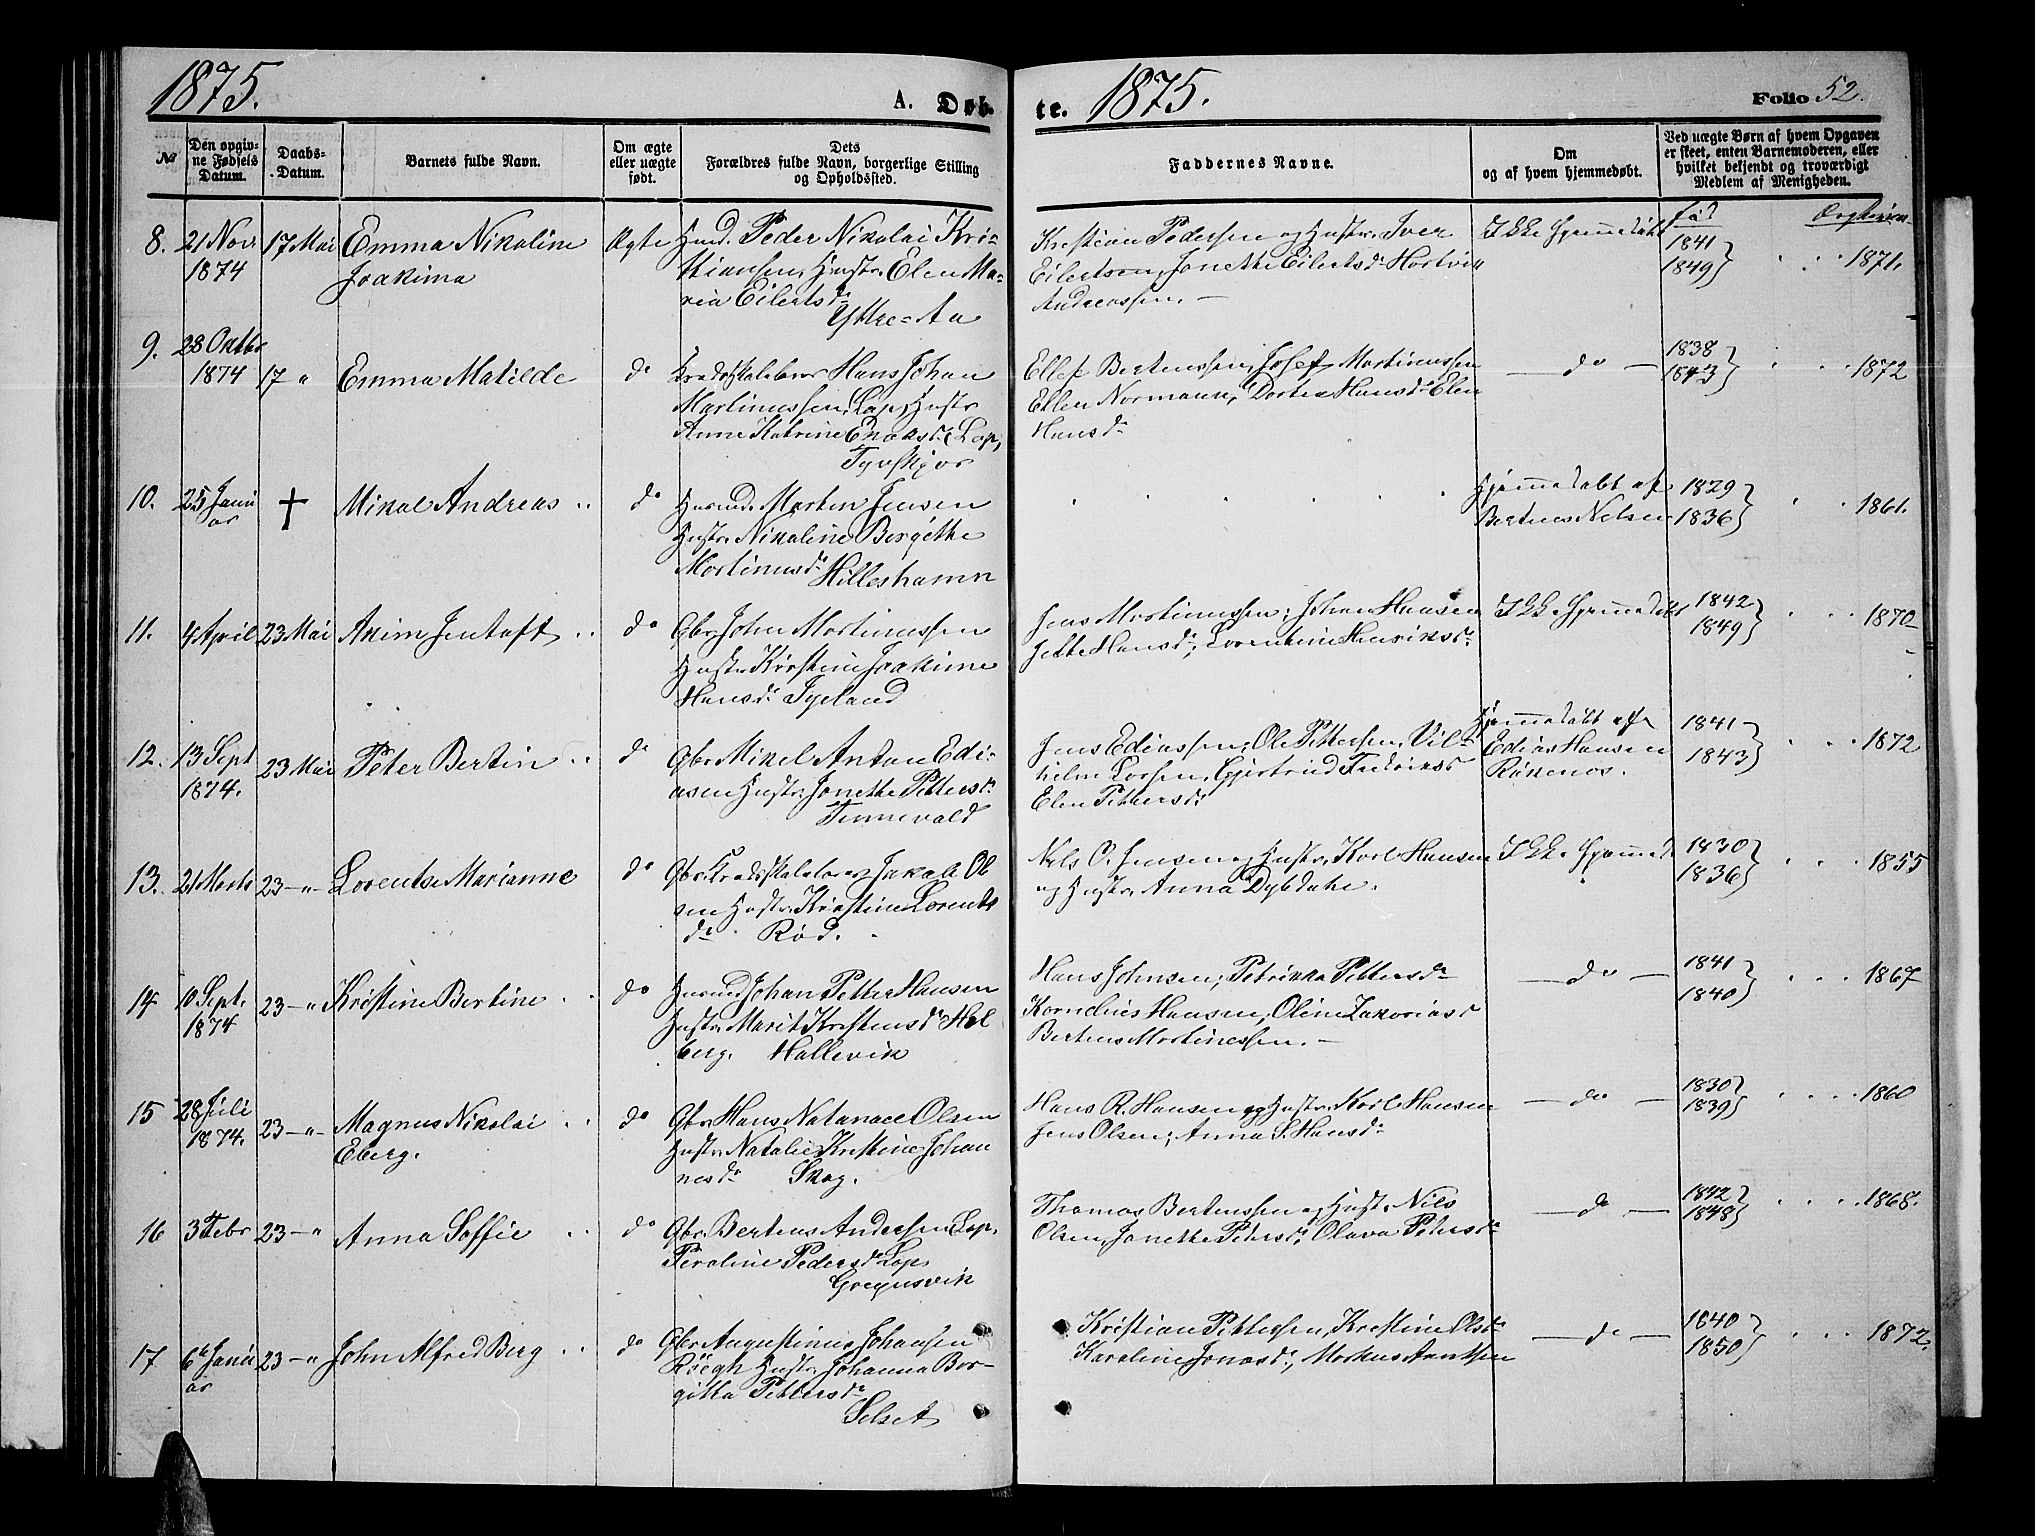 1875.
A. Døb-
te. 1875.
Folio 52.
№
Den opgiv-
ne Fødsels
Datum.
Daabs-
Datum.
Barnets fulde Navn.
Om ægte
eller uægte
født.
Dets
Forældres fulde Navn, borgerlige Stilling
og Opholdssted.
Faddernes Navne.
Om
og af hvem hjemmedøbt.
Ved uægte Børn af hvem Opgaven
er skeet, enten Barnemoderen, eller
hvilket bekjendt og troværdigt
Medlem af Menigheden.
født
8. 21 Nov. 17 Mai Emma Nikoline Ægte Husmd. Peder Nikolai Kri-
1874 Joakima stiansen, Hustr. Elen Ma-
ria Eilertsdr
Yttre-Aa
Kristian Pedersen og Hustr. Iver
Eilertsen, Jonetha Eilertsdr Hartvik
Andreassen. —
Ikke hjemmedøbt
1841
1849} 1871.
9. 28 Oktbr
1874 17 " Emma Matilde do Hans Johan
Martinussen, Lap, Hustr
Anne Katrine Enoksdr Lap,
Tyvskjær
Ellef Bertenssen, Josef Martinussen
Ellen Normann, Dortea Hansdr Elen
Hansdr
— do —
1838
1843} 1872
10. 25 Janu
ar † Mikal Andreas do Husmd. Morten Jensen
Hustr. Nikoline Bergithe
Martinusdr Hilleshamn
Hjemmedøbt af
Bertheus Nelsen
1829
1836} 1861.
11. 4 April 23 Mai Akim Jentoft do Gbr. John Martinussen
Hustr. Kirstine Joakime
Hansdr
Jens Martinussen, Johan Hansen
Jette Hansdr, Lorentine Henriksdr
Ikke hjemmedøbt
1842
1849} 1870
12. 13 Sept 23 Mai Peter Bertin do Gbr. Mikel Anton Edi-
1874. asen Hustr. Jonetha Pettersdr
Tennevold
Jens Ediassen, Ole Pettersen, Vil-
helm Larsen, Gjertrud
Elen Pettersdr
Hjemmedøbt af
Edias Hansen
Røkenes.
1841
1843} 1872
13. 21 Marts 23 — " Lorentse Marianne do Gbr. Jakob Ol
sen Hustr. Kirstine Lorents
dr. Rød.
Nils O. Jensen og Hustr. Karl Hansen
og Hustr. Anna Dybdahl.
Ikke hjemmed
1830
1836} 1855
14 10 Sept. 23 — " Kristine Bertine do Husmd Johan Petter Hansen
1874 Hustr. Marit Kristensdr Hol
berg. Hallevik
Hans Johnsen, Petrikka Pettersdr
Kornelius Hansen, Oline Zakariasdr
Berteus Martinessen. —
— do —
1841
1840} 1867
15 28 Juli
1874. 23 — " Magnus Nikolai do Gbr. Hans Natanael Olsen
Eberg. Hustr. Natalie Kristine Johan
nesdr Skog.
Hans R. Hansen og Hustr. Karl Hansen
Jens Olsen, Anna S. Hansdr
— do —
1830
1839} 1860
16 3 Febr 23 — " Anna Soffie do Gbr. Berteus Andersen Lap,
Peroline Pedersdr Lap
Gregusvik
Thomas Bertenssen og Hustr. Nils
Olsen, Janetha Petersdr, Olava Petersdr
— do —
1842
1848} 1868.
17 6 Janu
ar 23 — " John Alfred Berg do Gbr. Augustinus Johansen
Røegh Hustr. Johanna Ber-
gitta Pettersdr
Selset
Kristian Pettersen, Kristine Olsdr
Karoline Jonasdr, Markus Arntsen
— do —
1840
1850} 1872.